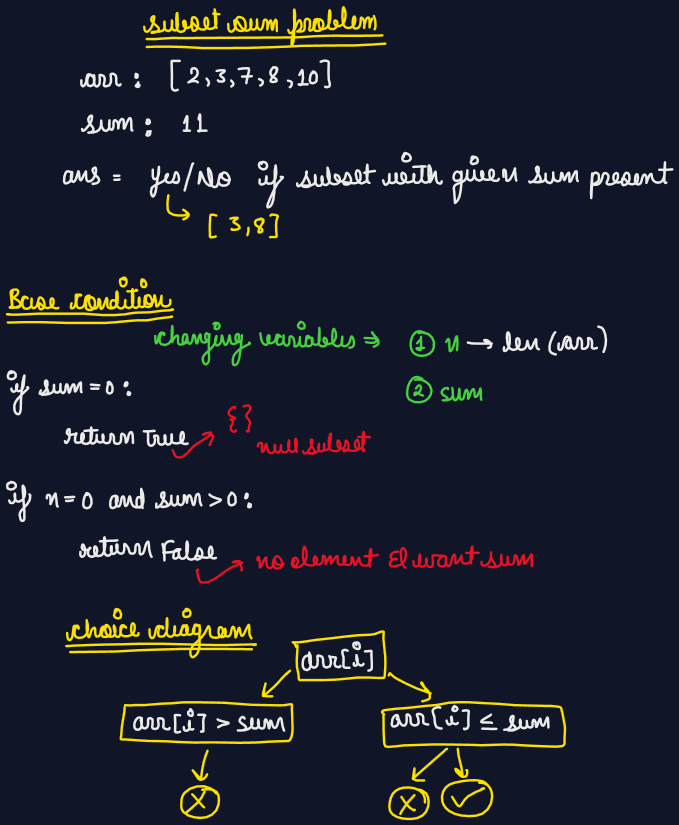 subset sum problem
arr : [2,3,7,8,10]
sum : 11
ans = Yes/No if subset with given sum present
[3,8]
Base condition
changing variables ⇒ ① n → len (arr)
② sum
if sum = 0 :
return True
{}
null subset
if n = 0 and sum > 0 :
return False
no element & want sum
choice diagram
arr[i]
arr[i] > sum
arr[i] ≤ sum